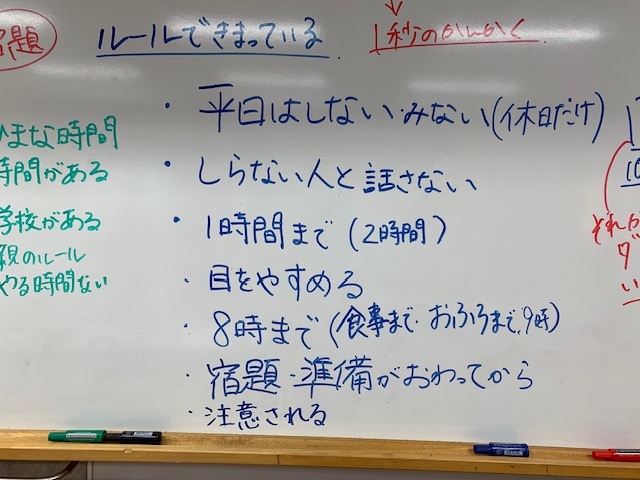 宿題
ルールできまっている
1秒のかんかく
・平日はしない・みない(休日だけ)
・しらない人と話さない
・1時間まで(2時間)
・目をやすめる
・8時まで(食事まで・おふろまで、9時)
・宿題・準備がおわってから
・注意される
ひまな時間
時間がある
学校がある
親のルール
やる時間ない
10
それか
ダ
い